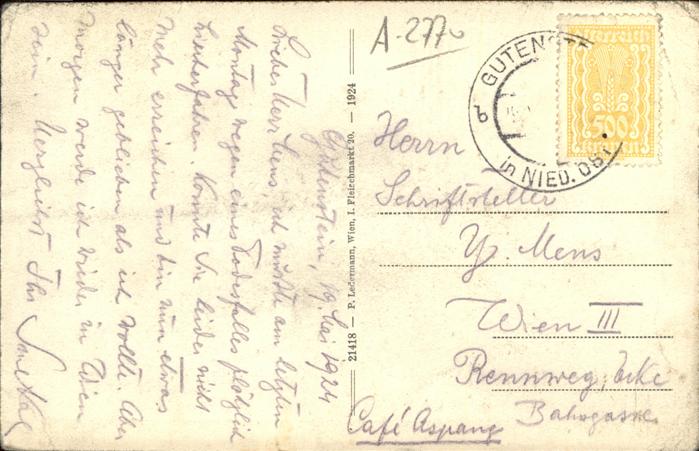 Gutenstein, 19. Mai 1924
Lieber Herr Mens, ich mußte am letzten
Montag wegen eines Todesfalles plötzlich
hierherfahren. Konnte Sie leider nicht
mehr erreichen und bin nun etwas
länger geblieben als ich wollte. Aber
morgen werde ich wieder in Wien
sein. Herzlichst Ihr
21418 — P. Ledermann, Wien, I. Fleischmarkt 20. — 1924
A-277
GUTENSTE
b
in NIED. ÖST
Österreich
500
Kronen
Herrn
Schriftsteller
Mens
Wien III
Rennweg, Ecke
Bahngasse
Café Aspang